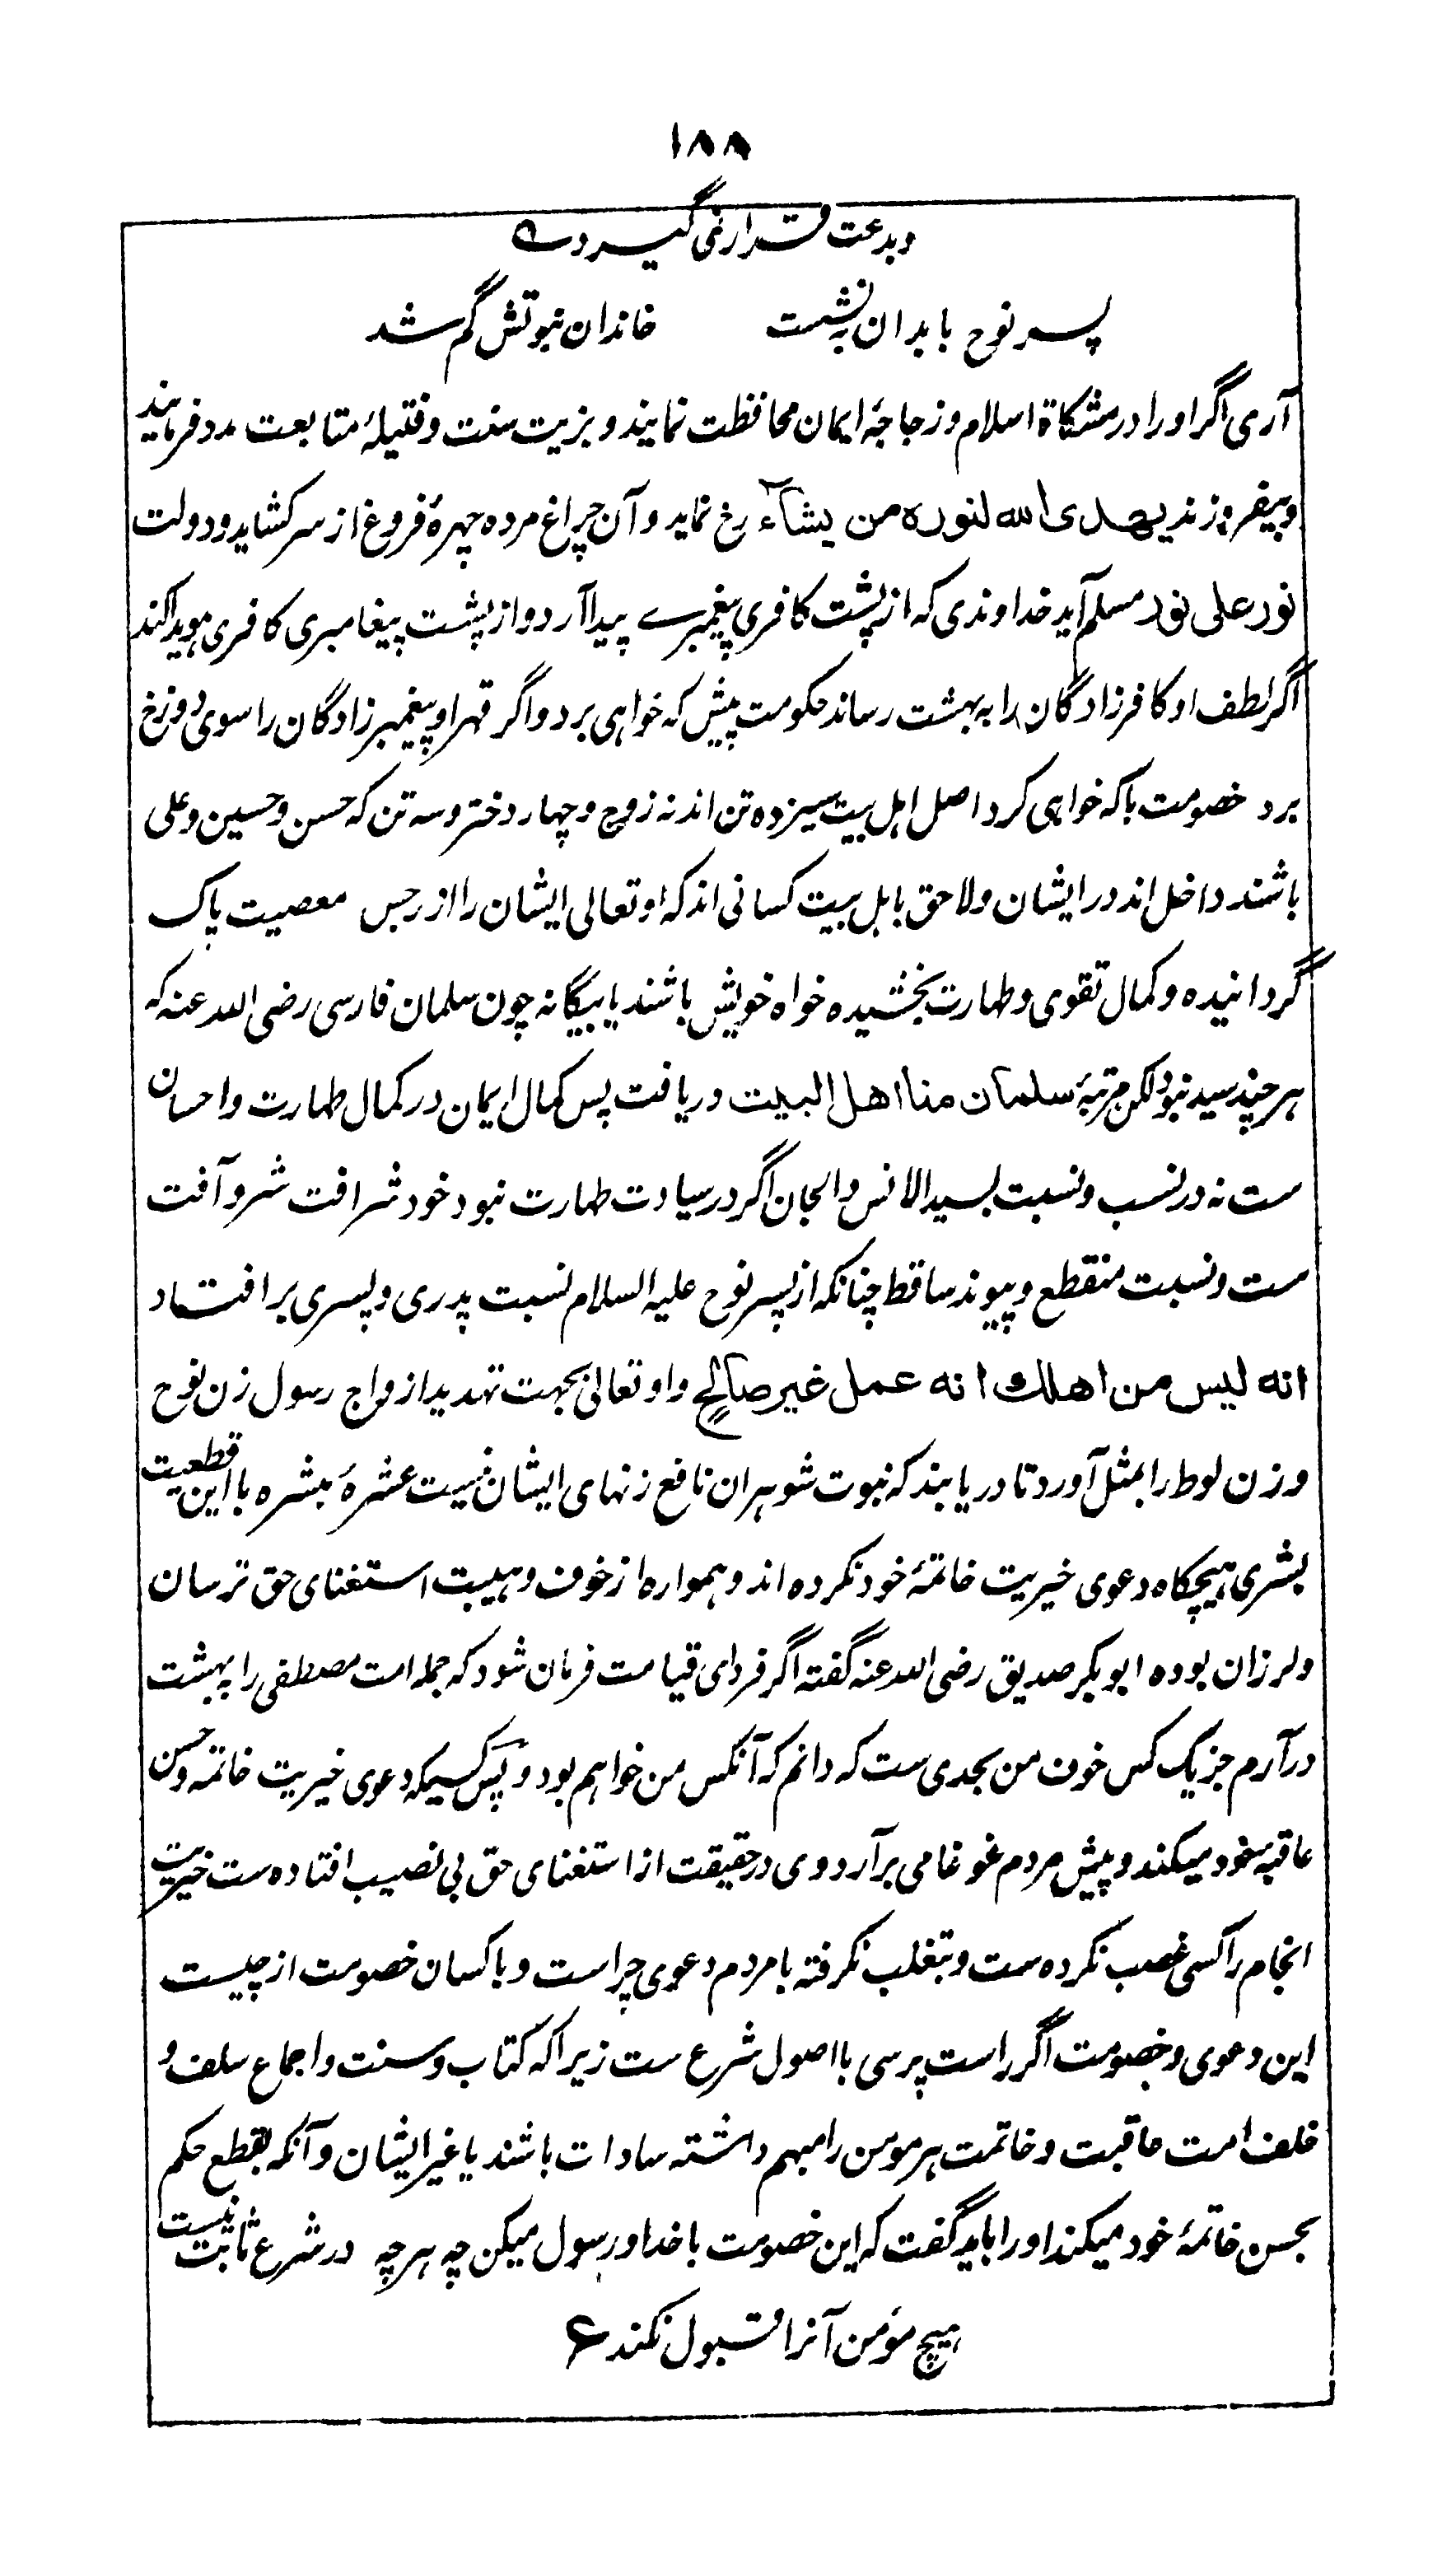 ۱۸۸
وبدعت قرار نمی گیرد ے
پسر نوح بابدان بنشست خاندان نبوتش گم شد
آری اگر اورا در مشکاة اسلام وزجاجۂ ایمان محافظت نمایند وبزیت سنت وفتیلۂ متابعت مدد فرمایند
وبیفروزند یهدی الله لنوره من یشآء رخ نماید وآن چراغ مرده چهرۂ فروغ از سر کشاید ودولت
نور علی نور مسلم آید خداوندی که از پشت کافری پیغمبرے پیدا آرد واز پشت پیغامبری کافری هویدا کند
اگر لطف او کافرزادگان را به بهشت رساند حکومت پیش که خواهی برد واگر قهر او پیغمبرزادگان را سوی دوزخ
برد خصومت با که خواهی کرد اصل اہل بیت سیزده تن اند نه زوج وچهار دختر وسه تن که حسن وحسین وعلی
باشند داخل اند در ایشان ولاحق باہل بیت کسانی اند که او تعالی ایشان را از رجس معصیت پاک
گردانیده وکمال تقوی وطهارت بخشیده خواه خویش باشند یا بیگانه چون سلمان فارسی رضی الله عنه که
هرچند سید نبود لکن مرتبۂ سلمان منا اهل البیت دریافت پس کمال ایمان در کمال طهارت واحسان
ست نه در نسب ونسبت بسید الانس والجان اگر در سیادت طهارت نبود خود شرافت شر وآفت
ست ونسبت منقطع وپیوند ساقط چنانکه از پسر نوح علیه السلام نسبت پدری وپسری بر افتاد
انه لیس من اهلك انه عمل غیر صالح واو تعالی بجهت تهدید ازواج رسول زن نوح
وزن لوط را بمثل آورد تا دریابند که نبوت شوهران نافع زنهای ایشان نیست عشرۂ مبشره با این قطعیت
بشری هیچگاه دعوی خیریت خاتمۂ خود نکرده اند وهمواره از خوف وهیبت استغنای حق ترسان
ولرزان بوده ابوبکر صدیق رضی الله عنه گفته اگر فردای قیامت فرمان شود که جمله امت مصطفی را ببهشت
در آرم جز یک کس خوف من بجدی ست که دانم که آنکس من خواهم بود وپس کسیکه دعوی خیریت خاتمه وحسن
عاقبه خود میکند وپیش مردم غوغا می برآرد وی در حقیقت از استغنای حق بی نصیب افتاده ست خیریت
انجام را کسی غصب نکرده ست وبتغلب نگرفته با مردم دعوی چراست وباکسان خصومت از چیست
این دعوی وخصومت اگر راست پرسی با اصول شرع ست زیرا که کتاب وسنت واجماع سلف و
خلف امت عاقبت وخاتمت هر مومن را مبهم داشته سادات باشند یا غیر ایشان وآنکه بقطع حکم
بحسن خاتمۂ خود میکند اورا باید گفت که این خصومت باخدا ورسول میکن چه هرچه در شرع ثابت نیست
هیچ مؤمن آنرا قبول نکند ع